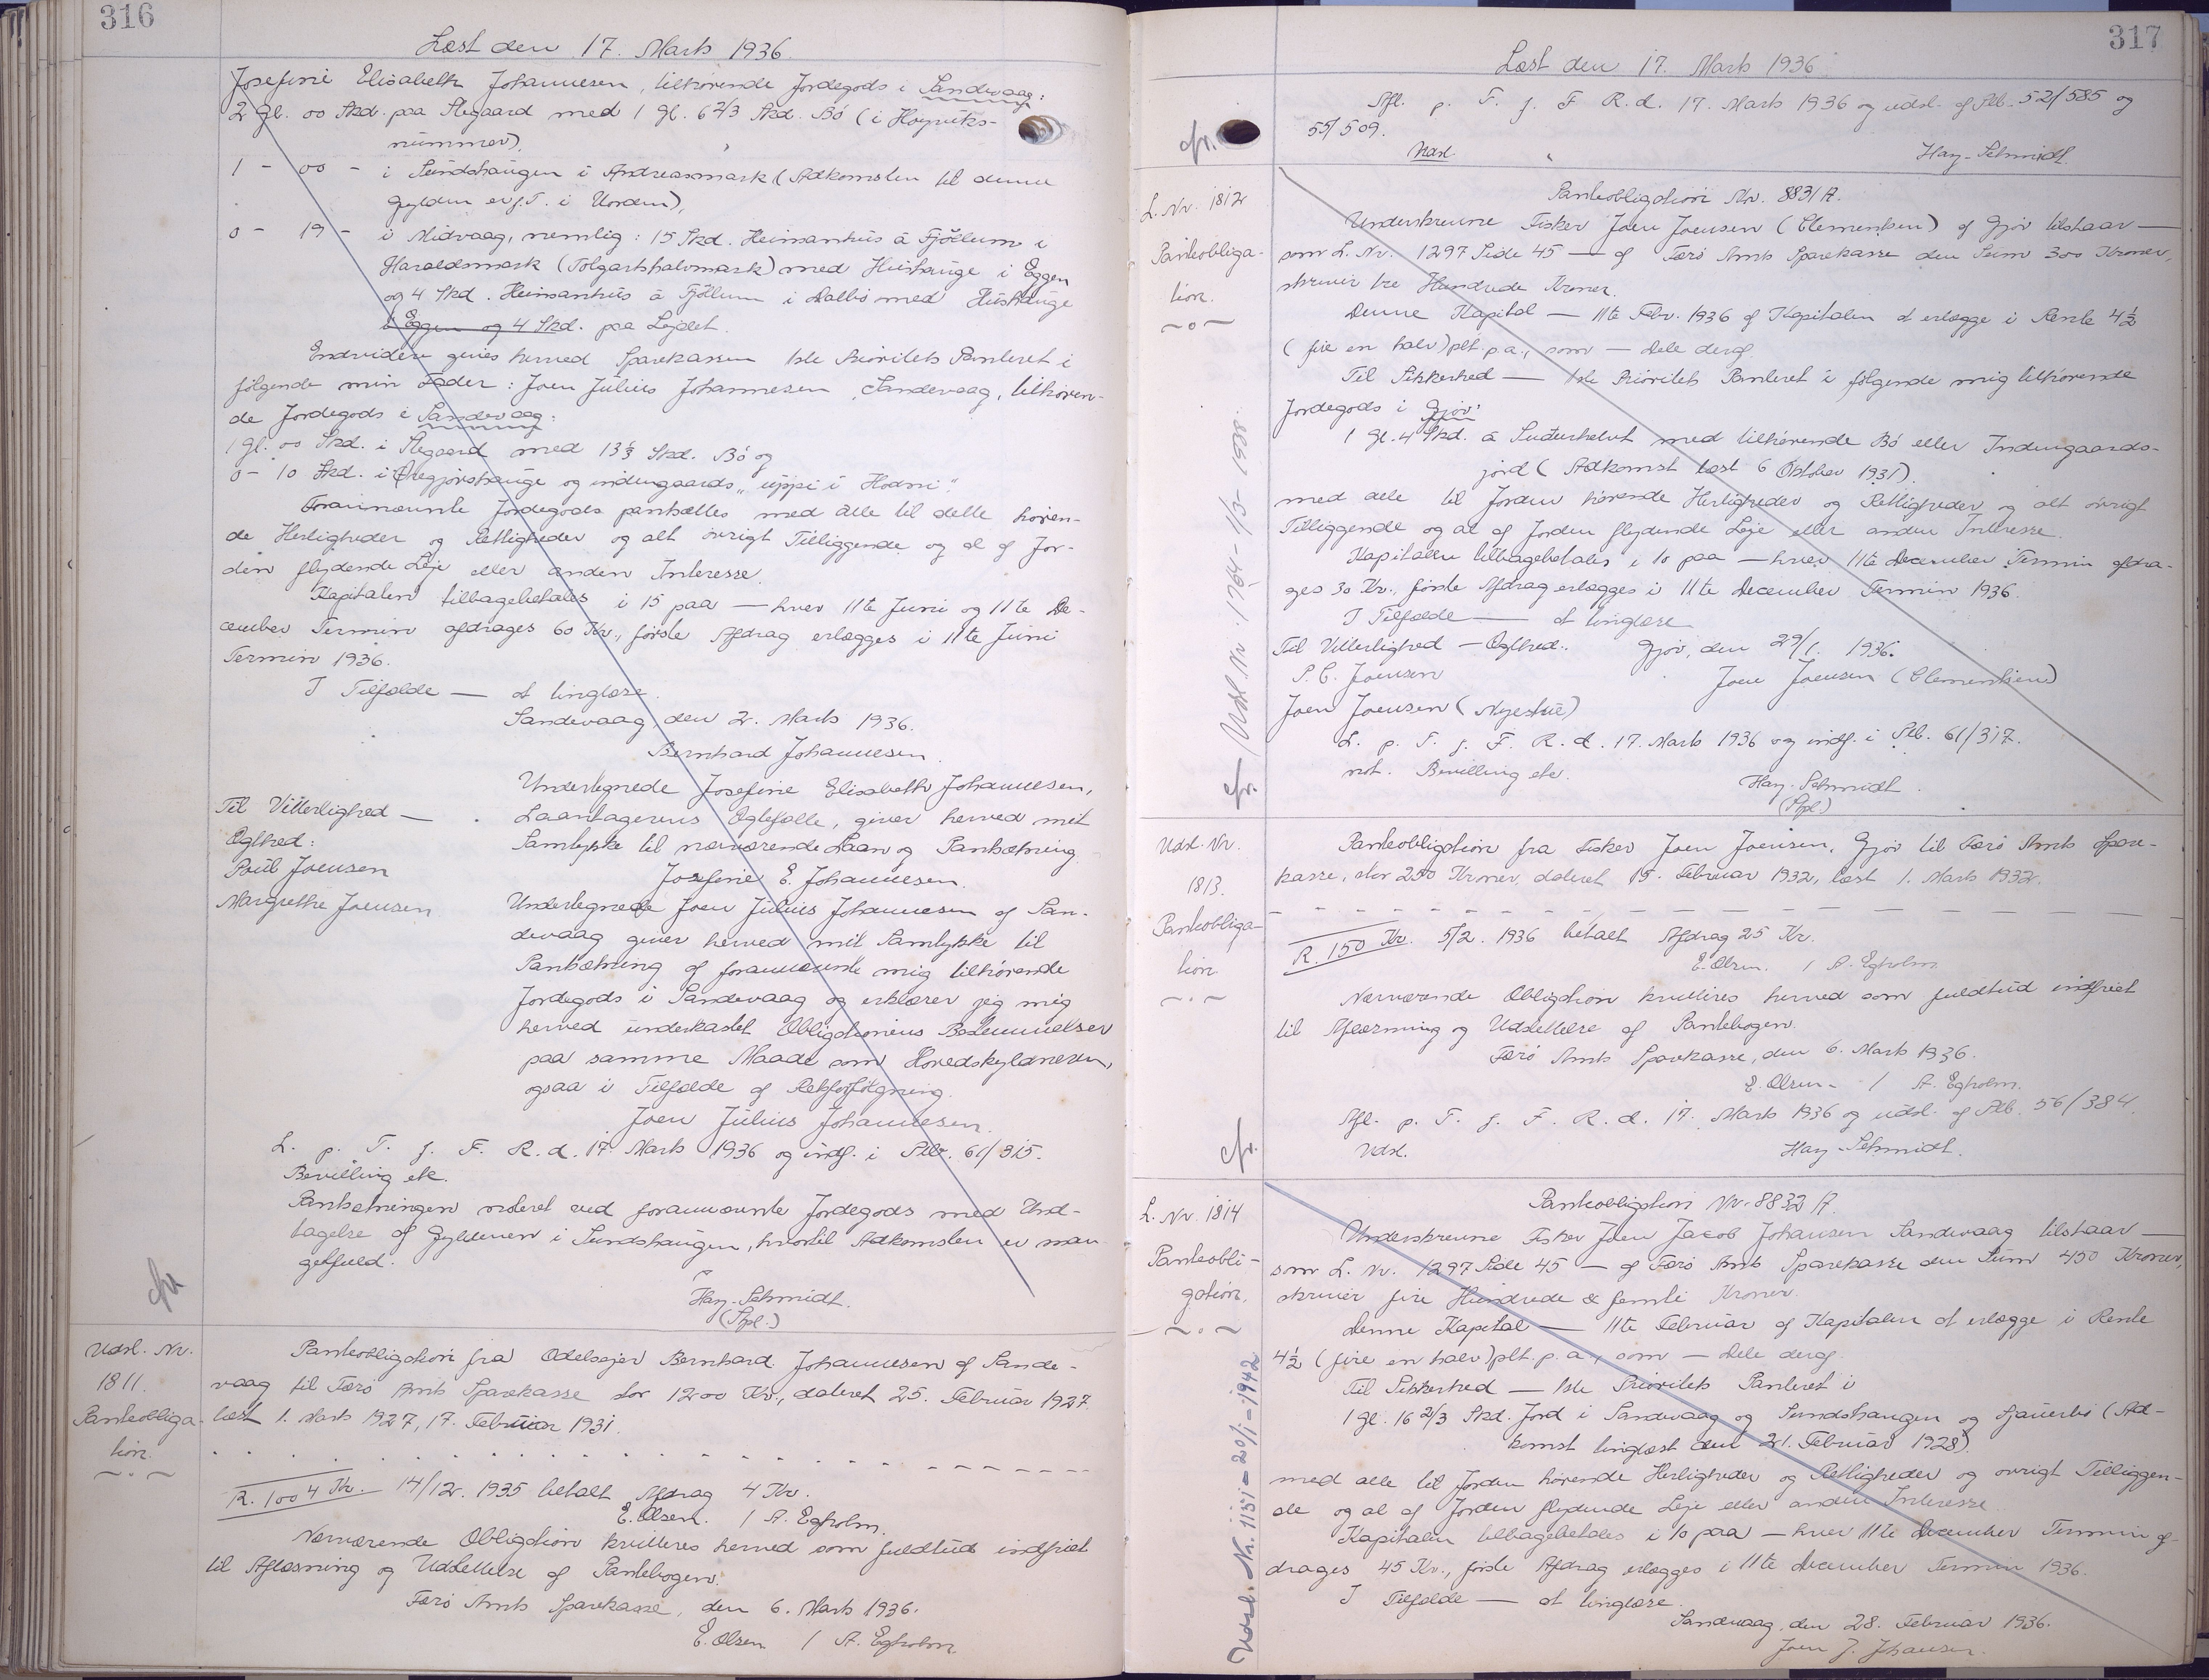 316
Læst den 17. Marts 1936.
Josefine Elisabeth Johannesen, tilhørende Jordegods i Sandevaag:
2 gl. 00 Skd. paa Ílegaard med 1 gl. 6 2/3 Skd. Bø (i Høyviks-
nummer),
1 - 00 - i Sundshaugen i Andreasmark (Adkomsten til denne
Gylden er j. T. i Uorden),
0 - 19 - i Midvaag, nemlig: 15 Skd. Heimanhús á Fjøllum i
Haraldsmark (Tolgartshalvmark) med Húshauge i Eggen
og 4 Skd. Heimanhús á Fjøllum i Dalbø med Húshauge
i Eggen og 4 Skd. paa Lejdet.
Endvidere gives herved Sparekassen 1ste Prioritets Panteret i
følgende min Fader: Joen Julius Johannesen, Sandevaag, tilhøren-
de Jordegods i Sandevaag:
1 gl. 00 Skd. i Ílegaard med 13 1/3 Skd. Bø og
0 - 10 Skd. i Øregjørshauge og indengaards "uppi i Hodni".
Forannævnte Jordegods pantsættes med alle til dette høren-
de Herligheder og Rettigheder og alt øvrigt Tilliggende og al af Jor-
den flydende Leje eller anden Interesse.
Kapitalen tilbagebetales i 15 paa — hver 11te Juni og 11te De-
cember Termin afdrages 60 Kr., første Afdrag erlægges i 11te Juni
Termin 1936.
I Tilfælde — at tinglæse.
Sandevaag, den 2. Marts 1936.
Bernhard Johannesen.
Undertegnede Josefine Elisabeth Johannesen,
Til Vitterlighed —
Laantagerens Ægtefælle, giver herved mit
Ægthed:
Samtykke til nærværende Laan og Pantsætning.
Poul Joensen
Josefine E. Johannesen.
Margrethe Joensen
Undertegnede Joen Julius Johannesen af San-
devaag giver herved mit Samtykke til
Pantsætning af forannævnte mig tilhørende
Jordegods i Sandevaag og erklærer jeg mig
herved underkastet Obligationens Bestemmelser
paa samme Maade som Hovedskyldneren,
ogsaa i Tilfælde af Retsforfølgning.
Joen Julius Johannesen.
L. p. T. f. F. R. d. 17. Marts 1936 og indf. i Ptb. 61/315.
Bevilling etc.
Pantsætningen noteret ved forannævnte Jordegods med Und-
tagelse af Gyldenen i Sundshaugen, hvortil Adkomsten er man-
gelfuld.
cfr.
Hay-Schmidt.
(Spl.)
Udsl. Nr.
1811.
Panteobliga-
tion.
Panteobligation fra Odelsejer Bernhard Johannesen af Sande-
vaag til Færø Amts Sparekasse stor 1200 Kr., dateret 25. Februar 1927.
læst 1. Marts 1927, 17. Februar 1931.
R. 1004 Kr. 14/12. 1935 betalt Afdrag 4 Kr.
E. Olsen. / A. Egholm.
Nærværende Obligation kvitteres herved som fuldtud indfriet
til Aflæsning og Udslettelse af Pantebogen.
Færø Amts Sparekasse, den 6. Marts 1936.
E. Olsen / A. Egholm.
317
Læst den 17. Marts 1936
Afl. p. T. f. F. R. d. 17. Marts 1936 og udsl. af Ptb. 52/585 og
cfr.
55/509.
Udsl.
Hay-Schmidt.
L. Nr. 1812
Panteobliga-
tion.
Panteobligation Nr. 8831 A.
Underskrevne Fisker Joen Joensen (Clementsen) af Gjov tilstaar —
som L. Nr. 1297 Side 45 — af Færø Amts Sparekasse den Sum 300 Kroner,
skriver tre Hundrede Kroner.
Denne Kapital — 11te Febr. 1936 af Kapitalen at erlægge i Rente 4½
(fire en halv) pCt. p. a., som — Dele deraf.
Til Sikkerhed — 1ste Prioritets Panteret i følgende mig tilhørende
Jordegods i Gjov:
1 gl. 4 Skd. á Suðurhelvt med tilhørende Bø eller Indengaards-
jord (Adkomst læst 6 Oktober 1931).
med alle til Jorden hørende Herligheder og Rettigheder og alt øvrigt
Tilliggende og al af Jorden flydende Leje eller anden Interesse.
Kapitalen tilbagebetales i 10 paa — hver 11te December Termin afdra-
ges 30 Kr., første Afdrag erlægges i 11te December Termin 1936.
I Tilfælde — at tinglæse
Til Vitterlighed — Ægthed. Gjov, den 29/1. 1936.
P. C. Joensen
Joen Joensen (Clementsen)
Joen Joensen (Nyestue)
L. p. T. f. F. R. d. 17. Marts 1936 og indf. i Ptb. 61/317.
not. Bevilling etc.
Hay-Schmidt.
(Spl)
cfr. Udsl. Nr. 1764 - 1/3 - 1938.
Udsl. Nr.
1813.
Panteobliga-
tion
Panteobligation fra Fisker Joen Joensen, Gjov til Færø Amts Spare-
kasse, stor 250 Kroner, dateret 15. Februar 1932, læst 1. Marts 1932.
R. 150 Kr. 5/2. 1936 betalt Afdrag 25 Kr.
E. Olsen. / A. Egholm
Nærværende Obligation kvitteres herved som fuldtud indfriet
til Aflæsning og Udslettelse af Pantebogen.
Færø Amts Sparekasse, den 6. Marts 1936.
E. Olsen - / A. Egholm.
Afl. p. T. f. F. R. d. 17. Marts 1936 og udsl. af Ptb. 56/384.
cfr.
Udsl.
Hay-Schmidt.
L. Nr. 1814
Panteobli-
gation.
Panteobligation Nr. 8832 A.
Underskrevne Fisker Joen Jacob Johansen Sandevaag tilstaar —
som L. Nr. 1297 Side 45 — af Færø Amts Sparekasse den Sum 450 Kroner,
skriver fire Hundrede & femti Kroner.
Denne Kapital — 11te Februar af Kapitalen at erlægge i Rente
4½ (fire en halv) pCt. p. a., som — Dele deraf.
Til Sikkerhed — 1ste Prioritets Panteret i
1 gl. 16 2/3 Skd. Jord i Sandevaag og Sundshaugen og (Ad-
komst tinglæst den 21. Februar 1928).
med alle til Jorden hørende Herligheder og Rettigheder og øvrigt Tilliggen-
de og al af Jorden flydende Leje eller anden Interesse.
Kapitalen tilbagebetales i 10 paa — hver 11te December Termin af-
drages 45 Kr., første Afdrag erlægges i 11te December Termin 1936.
I Tilfælde — at tinglæse.
Sandevaag, den 28. Februar 1936.
Joen J. Johansen.
Udsl. Nr. 1151 - 20/1 - 1942